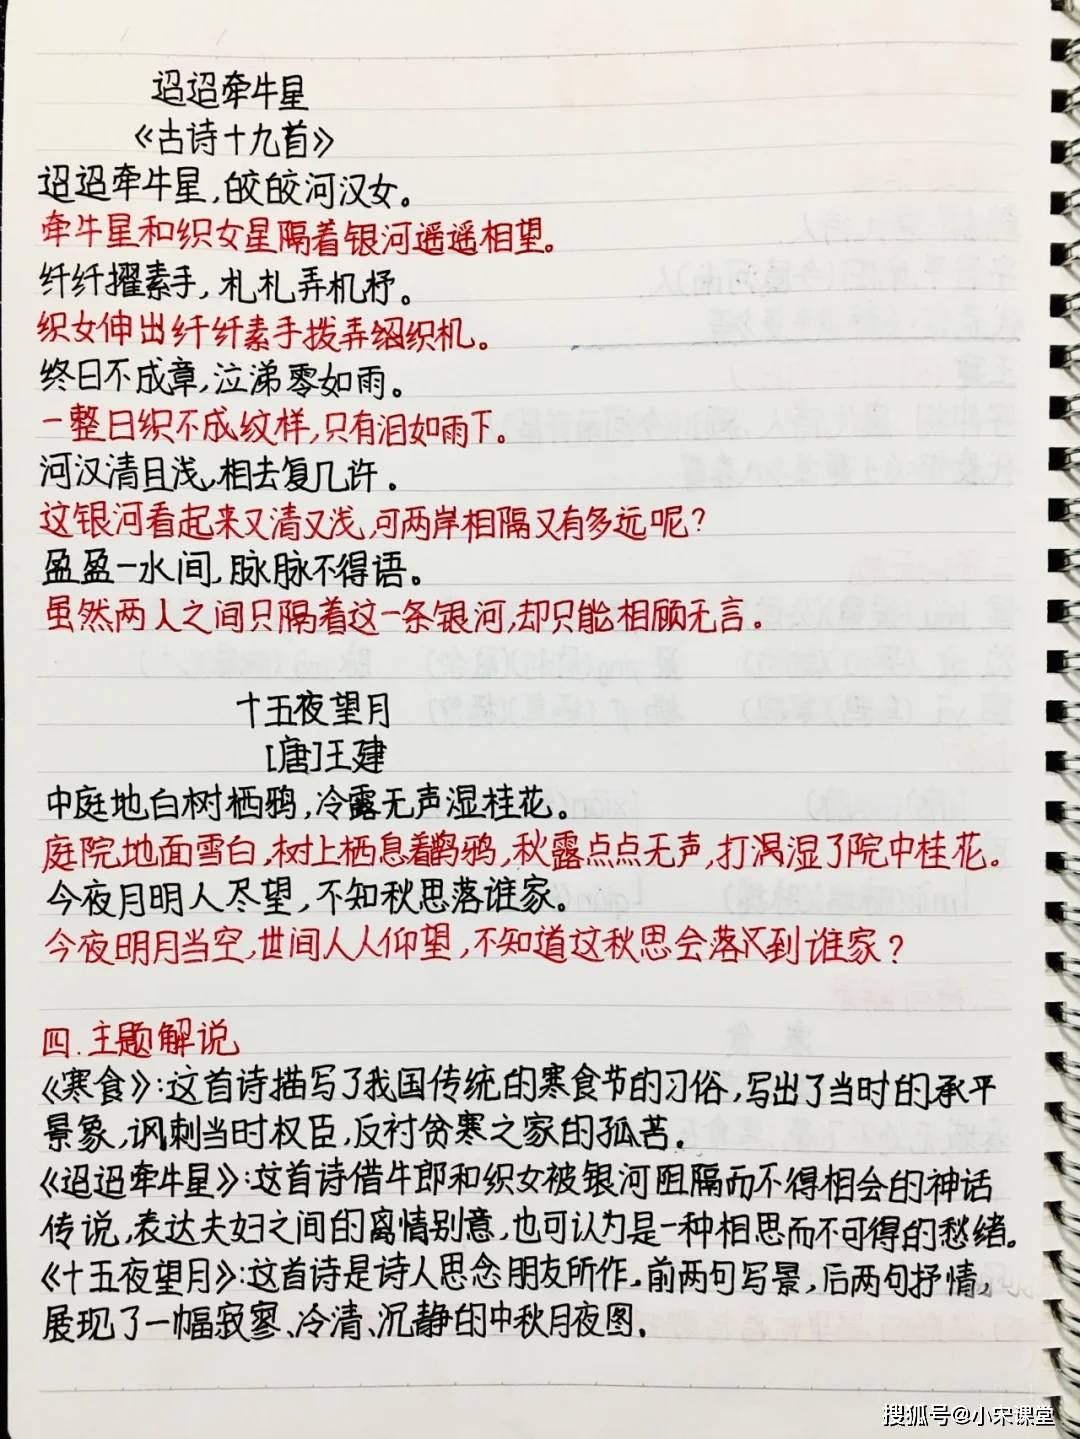 迢迢牵牛星
《古诗十九首》
迢迢牵牛星，皎皎河汉女。
牵牛星和织女星隔着银河遥遥相望。
纤纤擢素手，札札弄机杼。
织女伸出纤纤素手拨弄织机。
终日不成章，泣涕零如雨。
一整日织不成纹样，只有泪如雨下。
河汉清且浅，相去复几许。
这银河看起来又清又浅，可两岸相隔又有多远呢？
盈盈一水间，脉脉不得语。
虽然两人之间只隔着这一条银河，却只能相顾无言。
十五夜望月
[唐]王建
中庭地白树栖鸦，冷露无声湿桂花。
庭院地面雪白，树上栖息着鹊鸦，秋露点点无声，打湿了院中桂花。
今夜月明人尽望，不知秋思落谁家。
今夜明月当空，世间人人仰望，不知道这秋思会落到谁家？
四.主题解说
《寒食》：这首诗描写了我国传统的寒食节的习俗，写出了当时的承平
景象，讽刺当时权臣，反衬贫寒之家的孤苦。
《迢迢牵牛星》：这首诗借牛郎和织女被银河阻隔而不得相会的神话
传说，表达夫妇之间的离情别意，也可认为是一种相思而不可得的愁绪。
《十五夜望月》：这首诗是诗人思念朋友所作。前两句写景，后两句抒情，
展现了一幅寂寥、冷清、沉静的中秋月夜图。
搜狐号@小宋课堂